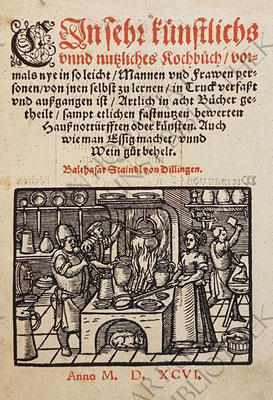 EIn sehr künstlichs
vnnd nutzliches Kochbůch / vor-
mals nye in so leicht / Mannen vnd Frawen per
sonen / von jnen selbst zu lernen / in Truck verfaßt
vnd außgangen ist / Artlich in acht Bücher ge-
theilt / sampt etlichen fastnutzen bewerten
Haußnotürfften oder künsten. Auch
wie man Essig machet / vnnd
Wein gůt behelt.
Balthasar Staindl von Dillingen.
Anno M. D. XCVI.